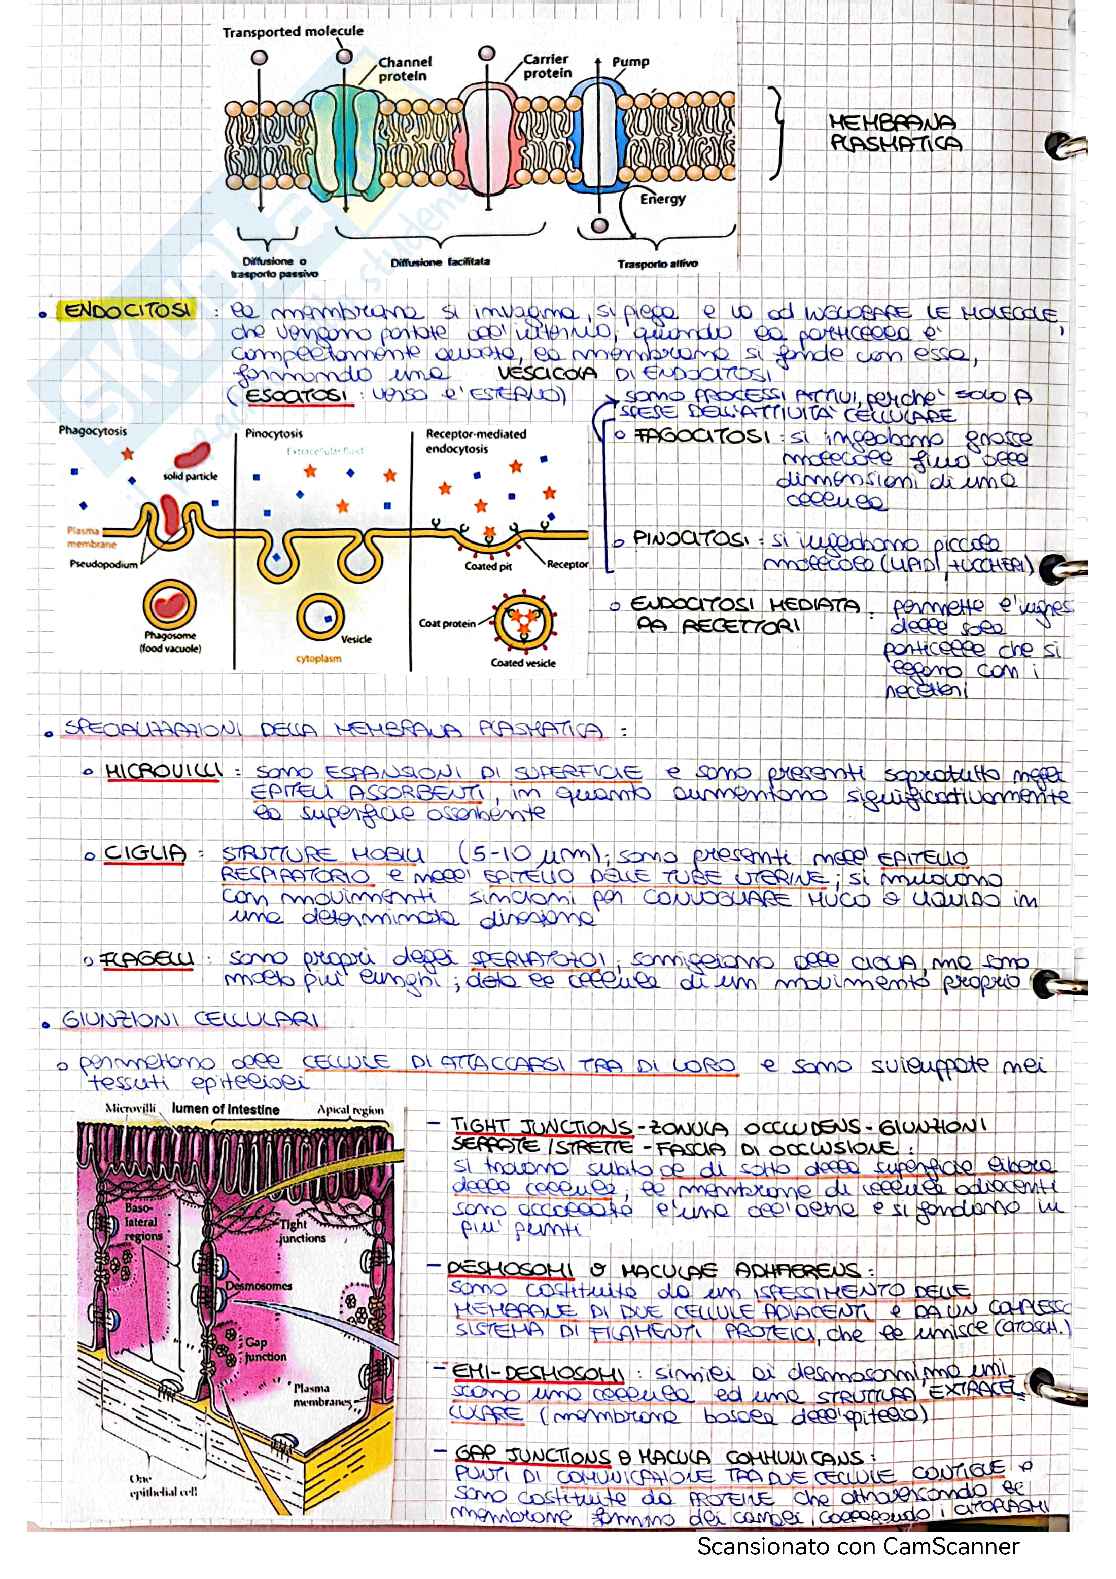 Transported molecule
Channel protein
Carrier protein
Pump
Energy
Diffusione o trasporto passivo
Diffusione facilitata
Trasporto attivo
MEMBRANA
PLASMATICA
• ENDOCITOSI : la membrana si invagina, si piega e va ad INGLOBARE LE MOLECOLE,
che vengono portate all'interno; quando la particella è
completamente avvolta, la membrana si fonde con essa,
formando una VESCICOLA DI ENDOCITOSI
(ESOCITOSI : verso l'ESTERNO)
sono PROCESSI ATTIVI, perché solo A
SPESE DELL'ATTIVITÀ CELLULARE
Phagocytosis
solid particle
Plasma membrane
Pseudopodium
Phagosome
(food vacuole)
Pinocytosis
Extracellular fluid
Vesicle
cytoplasm
Receptor-mediated
endocytosis
Coated pit
Receptor
Coat protein
Coated vesicle
o FAGOCITOSI : si inglobano grosse
molecole fino alle
dimensioni di una
cellula
o PINOCITOSI : si inglobano piccole
molecole (LIPIDI, ZUCCHERI)
o ENDOCITOSI MEDIATA : permette l'ingres
DA RECETTORI delle sole
particelle che si
legano con i
recettori
• SPECIALIZZAZIONI DELLA MEMBRANA PLASMATICA :
o MICROVILLI : sono ESPANSIONI DI SUPERFICIE e sono presenti sopratutto negli
EPITELI ASSORBENTI, in quanto aumentano significativamente
la superficie assorbente
o CIGLIA : STRUTTURE MOBILI (5-10 μm); sono presenti nell'EPITELIO
RESPIRATORIO e nell'EPITELIO DELLE TUBE UTERINE; si muovono
con movimenti sincroni per CONVOGLIARE MUCO O LIQUIDO in
una determinata direzione
o FLAGELLI : sono propri degli SPERMATOZOI, somigliano alle CIGLIA, ma sono
molto più lunghi; dota la cellula di un movimento proprio
• GIUNZIONI CELLULARI
o permettono alle CELLULE DI ATTACCARSI TRA DI LORO e sono sviluppate nei
tessuti epiteliali
Microvilli
lumen of Intestine
Apical region
Baso-
lateral
regions
Tight
junctions
Desmosomes
Gap
junction
Plasma
membranes
One
epithelial cell
- TIGHT JUNCTIONS - ZONULA OCCLUDENS - GIUNZIONI
SERRATE/STRETTE - FASCIA DI OCCLUSIONE :
si trovano subito al di sotto della superficie libera
delle cellule, le membrane di cellule adiacenti
sono accollate l'una all'altra e si fondono in
più punti
- DESMOSOMI O MACULAE ADHAERENS :
sono costituite da un ISPESSIMENTO DELLE
MEMBRANE DI DUE CELLULE ADIACENTI e DA UN COMPLESSO
SISTEMA DI FILAMENTI PROTEICI, che le unisce (CITOSCH.)
- EMI-DESMOSOMI : simili ai desmosomi, ma uni
scono una cellula ed una STRUTTURA EXTRACEL
LULARE (membrana basale dell'epitelio)
- GAP JUNCTIONS O MACULA COMMUNICANS :
PUNTI DI COMUNICAZIONE TRA DUE CELLULE CONTIGUE e
sono costituite da PROTEINE che attraversando le
membrane formano dei canali, collegando i CITOPLASMI
Scansionato con CamScanner